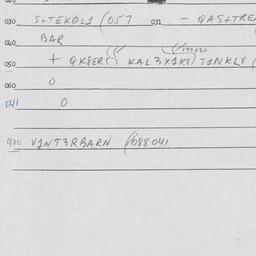 030 S+TEKOL1 (057 032 - QAS+TRE
040 BAR
170030
050 + QK8ER( KAL3X1K8) T1NKL8 (
060 0
041 0
900 V1NT3RBARN (088041